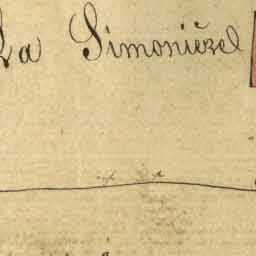 La Simonièzel